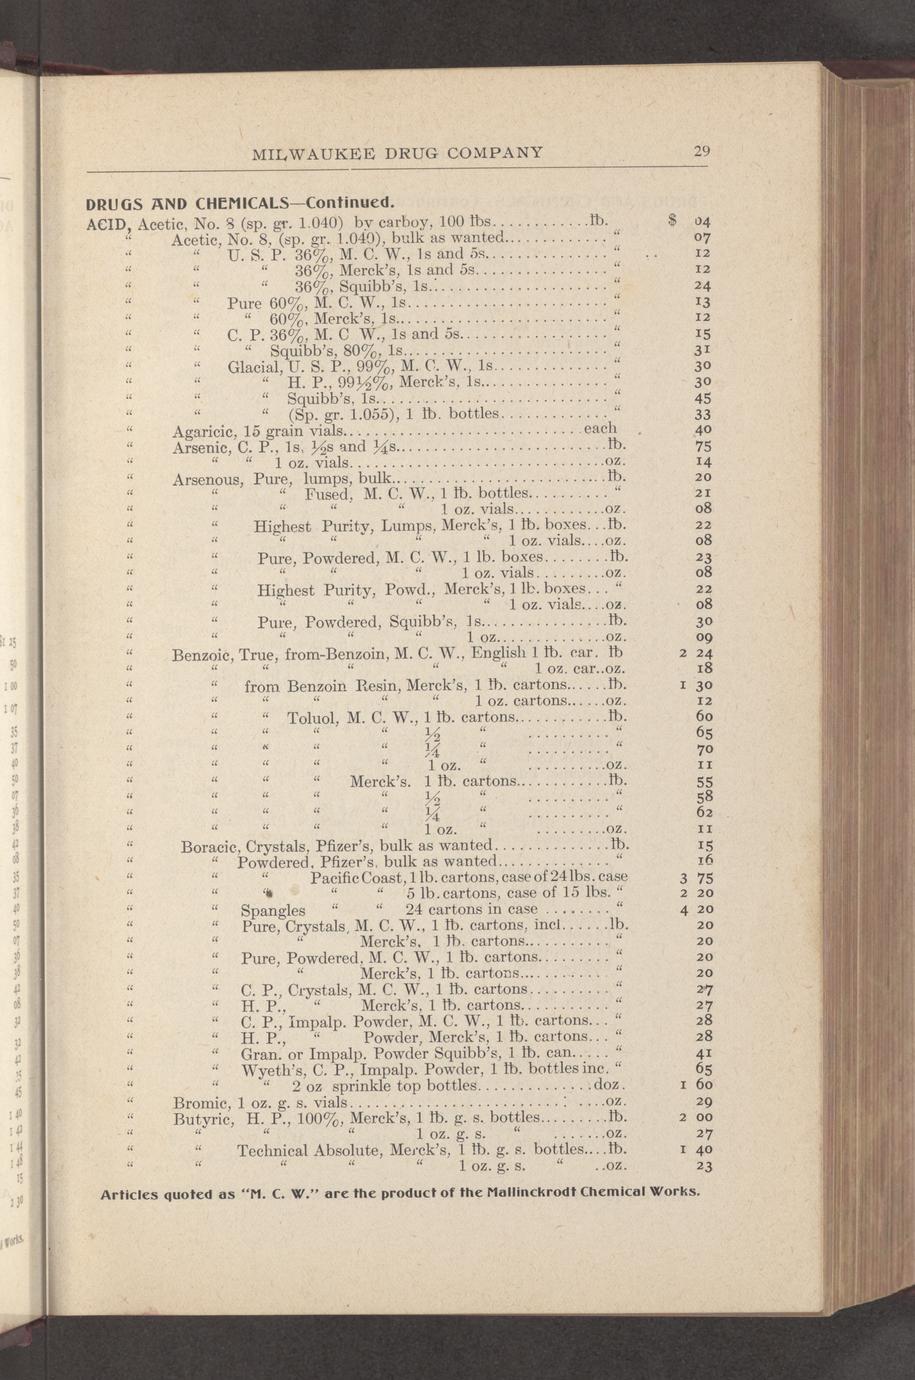 MILWAUKEE DRUG COMPANY 29
DRUGS AND CHEMICALS—Continued.
ACID, Acetic, No. 8 (sp. gr. 1.040) by carboy, 100 lbs............lb. $ 04
" Acetic, No. 8, (sp. gr. 1.040), bulk as wanted............. " 07
" " U. S. P. 36%, M. C. W., 1s and 5s............... " 12
" " " 36%, Merck's, 1s and 5s................ " 12
" " " 36%, Squibb's, 1s...................... " 24
" " Pure 60%, M. C. W., 1s......................... " 13
" " " 60%, Merck's, 1s.......................... " 12
" " C. P. 36%, M. C W., 1s and 5s.................. " 15
" " " Squibb's, 80%, 1s......................... " 31
" " Glacial, U. S. P., 99%, M. C. W., 1s.............. " 30
" " " H. P., 99½%, Merck's, 1s................ " 30
" " " Squibb's, 1s............................. " 45
" " " (Sp. gr. 1.055), 1 lb. bottles............. " 33
" Agaricic, 15 grain vials..............................each 40
" Arsenic, C. P., 1s, ½s and ¼s..........................lb. 75
" " " 1 oz. vials................................oz. 14
" Arsenous, Pure, lumps, bulk...........................lb. 20
" " " Fused, M. C. W., 1 lb. bottles.......... " 21
" " " " " 1 oz. vials...........oz. 08
" " Highest Purity, Lumps, Merck's, 1 lb. boxes...lb. 22
" " " " " " 1 oz. vials....oz. 08
" " Pure, Powdered, M. C. W., 1 lb. boxes........lb. 23
" " " " " 1 oz. vials.........oz. 08
" " Highest Purity, Powd., Merck's, 1 lb. boxes... " 22
" " " " " " 1 oz. vials....oz. 08
" " Pure, Powdered, Squibb's, 1s...............lb. 30
" " " " " 1 oz.............oz. 09
" Benzoic, True, from-Benzoin, M. C. W., English 1 lb. car. lb 2 24
" " " " " " 1 oz. car..oz. 18
" " from Benzoin Resin, Merck's, 1 lb. cartons......lb. 1 30
" " " " " " 1 oz. cartons......oz. 12
" " " Toluol, M. C. W., 1 lb. cartons...........lb. 60
" " " " " ½ " .......... " 65
" " " " " ¼ " .......... " 70
" " " " " 1 oz. " ..........oz. 11
" " " " Merck's. 1 lb. cartons...........lb. 55
" " " " " ½ " .......... " 58
" " " " " ¼ " .......... " 62
" " " " " 1 oz. " .........oz. 11
" Boracic, Crystals, Pfizer's, bulk as wanted..............lb. 15
" " Powdered, Pfizer's, bulk as wanted............. " 16
" " " Pacific Coast, 1 lb. cartons, case of 24 lbs. case 3 75
" " " " " 5 lb. cartons, case of 15 lbs. " 2 20
" " Spangles " " 24 cartons in case ........ " 4 20
" " Pure, Crystals, M. C. W., 1 lb. cartons, incl......lb. 20
" " " Merck's, 1 lb. cartons.......... " 20
" " Pure, Powdered, M. C. W., 1 lb. cartons......... " 20
" " " Merck's, 1 lb. cartons........... " 20
" " C. P., Crystals, M. C. W., 1 lb. cartons.......... " 27
" " H. P., " Merck's, 1 lb. cartons........... " 27
" " C. P., Impalp. Powder, M. C. W., 1 lb. cartons... " 28
" " H. P., " Powder, Merck's, 1 lb. cartons... " 28
" " Gran. or Impalp. Powder Squibb's, 1 lb. can..... " 41
" " Wyeth's, C. P., Impalp. Powder, 1 lb. bottles inc. " 65
" " " 2 oz sprinkle top bottles.............doz. 1 60
" Bromic, 1 oz. g. s. vials.............................oz. 29
" Butyric, H. P., 100%, Merck's, 1 lb. g. s. bottles.........lb. 2 00
" " " " 1 oz. g. s. " .......oz. 27
" " Technical Absolute, Merck's, 1 lb. g. s. bottles....lb. 1 40
" " " " " 1 oz. g. s. " ..oz. 23
Articles quoted as "M. C. W." are the product of the Mallinckrodt Chemical Works.